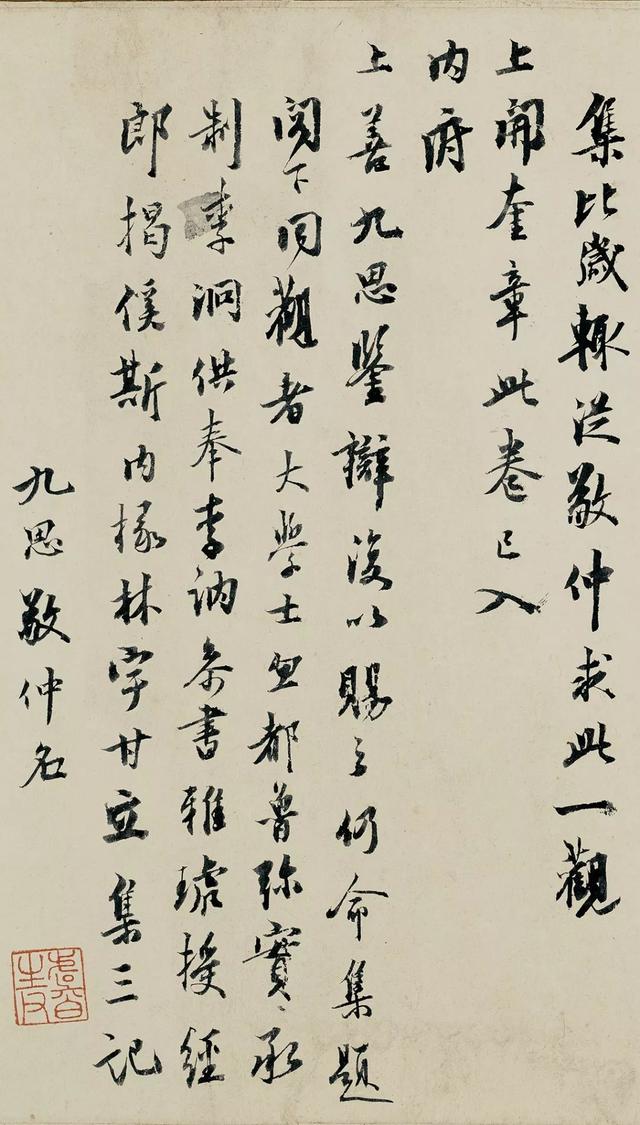 集比歲輒從敬仲求此一觀
上開奎章此卷已入
內府
上善九思鑒辯復以賜之仍命集題
閣下同觀者大學士忽都魯弥實承
制李泂供奉李訥叅書雅琥授經
郎揭傒斯內掾林宇甘立集三記
九思敬仲名